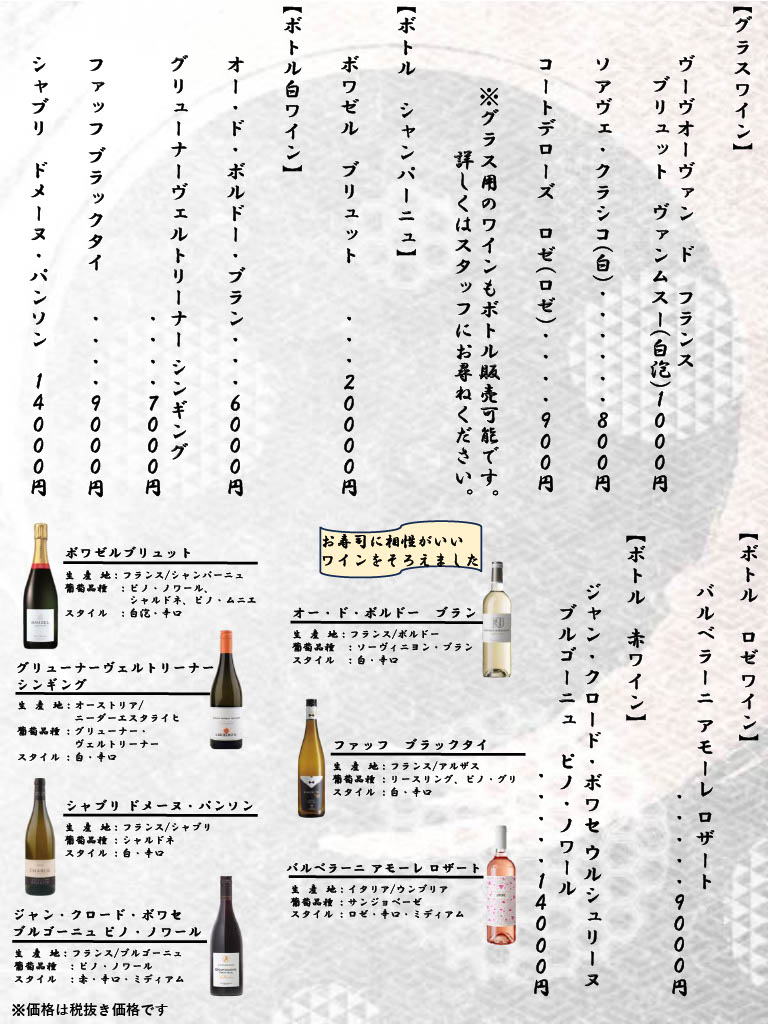 【グラスワイン】
ヴーヴオーヴァン ド フランス
ブリュット ヴァンムスー(白泡)1000円
ソアヴェ・クラシコ(白)・・・・・・・800円
コートデローズ ロゼ(ロゼ)・・・・900円
※グラス用のワインもボトル販売可能です。
詳しくはスタッフにお尋ねください。
【ボトル シャンパーニュ】
ボワゼル ブリュット ・・・20000円
【ボトル白ワイン】
オー・ド・ボルドー・ブラン・・・・6000円
グリューナーヴェルトリーナー シンギング
・・・・7000円
ファッフ ブラックタイ ・・・・9000円
シャブリ ドメーヌ・パンソン 14000円
【ボトル ロゼワイン】
バルベラーニ アモーレ ロザート
・・・・・・9000円
【ボトル 赤ワイン】
ジャン・クロード・ボワセ ウルシュリーヌ
ブルゴーニュ ピノ・ノワール
・・・・・・14000円
お寿司に相性がいい
ワインをそろえました
ボワゼルブリュット
生産地：フランス/シャンパーニュ
葡萄品種：ピノ・ノワール、
シャルドネ、ピノ・ムニエ
スタイル：白泡・辛口
オー・ド・ボルドー ブラン
生産地：フランス/ボルドー
葡萄品種：ソーヴィニヨン・ブラン
スタイル：白・辛口
グリューナーヴェルトリーナー
シンギング
生産地：オーストリア/
ニーダーエスタライヒ
葡萄品種：グリューナー・
ヴェルトリーナー
スタイル：白・辛口
ファッフ ブラックタイ
生産地：フランス/アルザス
葡萄品種：リースリング、ピノ・グリ
スタイル：白・辛口
シャブリ ドメーヌ・パンソン
生産地：フランス/シャブリ
葡萄品種：シャルドネ
スタイル：白・辛口
バルベラーニ アモーレ ロザート
生産地：イタリア/ウンブリア
葡萄品種：サンジョベーゼ
スタイル：ロゼ・辛口・ミディアム
ジャン・クロード・ボワセ
ブルゴーニュ ピノ・ノワール
生産地：フランス/ブルゴーニュ
葡萄品種：ピノ・ノワール
スタイル：赤・辛口・ミディアム
※価格は税抜き価格です